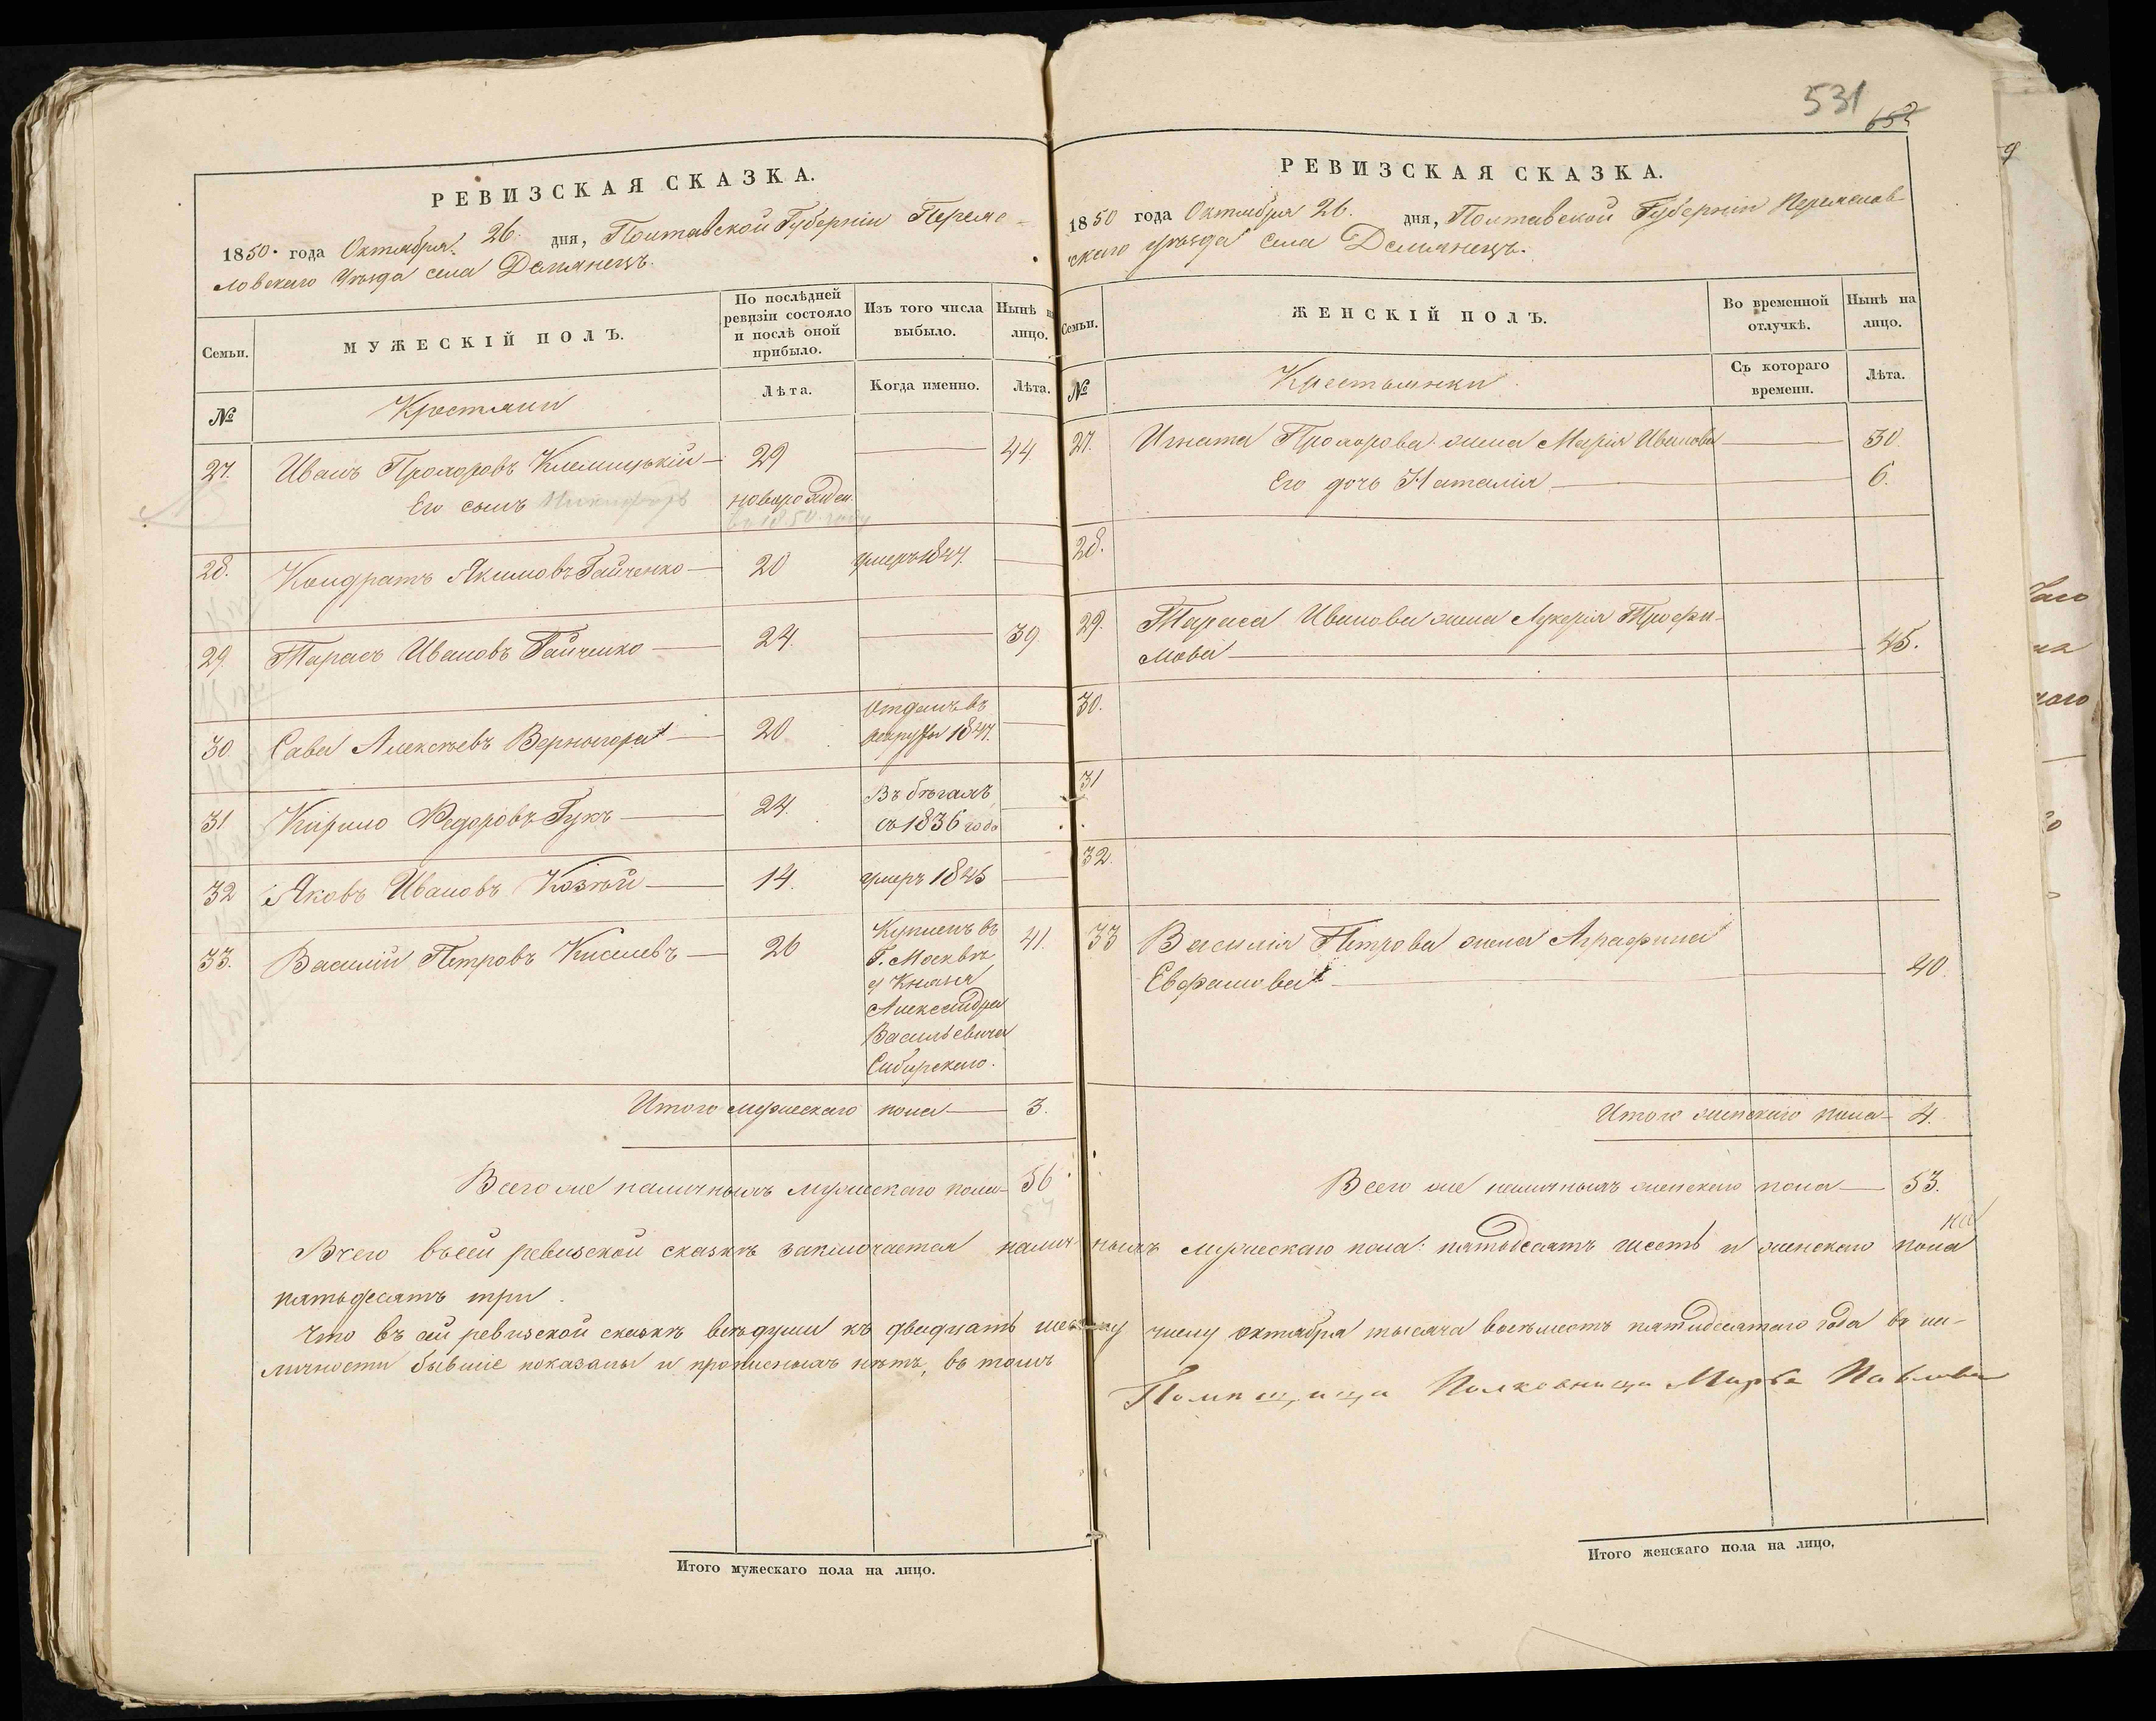 531
652
РЕВИЗСКАЯ СКАЗКА.
1850. года Октября 26. дня, Полтавской Губерніи Перяс-
ловскаго Уѣзда села Демянецъ.
Семьи.
МУЖЕСКІЙ ПОЛЪ.
По послѣдней
ревизіи состояло
и послѣ оной
прибыло.
Изъ того числа
выбыло.
Нынѣ на
лицо.
№
Крестяни
Лѣта.
Когда именно.
Лѣта.
27. Иванъ Прохоровъ Клемицькій 29 44
Его сынъ Никифоръ новорожден.
въ 1850 году
28. Кондратъ Якимовъ Гайченко 20 умеръ 1847.
29. Тарасъ Ивановъ Гайченко 24. 39.
30. Сава Алексѣевъ Верногора 20. Отданъ въ
рекруты 1847.
31 Кирило Федоровъ Гукъ 24. Въ бѣгахъ
съ 1836 года
32 Яковъ Ивановъ Козѣй 14. умеръ 1845
33. Василій Петровъ Киселевъ 26 Купленъ въ 41.
Г. Москвѣ
у Князя
Александра
Васильевича
Сибирскаго.
Итого мужескаго пола 3.
Всего же наличныхъ мужескаго пола 56
РЕВИЗСКАЯ СКАЗКА.
1850 года Октября 26. дня, Полтавской Губерніи Переяслав-
скаго уѣзда села Демянецъ.
Семьи.
ЖЕНСКІЙ ПОЛЪ.
Во временной
отлучкѣ.
Нынѣ на
лицо.
№
Крестьянки
Съ котораго
времени.
Лѣта.
27. Игната Прохорова жена Марія Иванова 30.
Его дочь Наталія 6.
28.
29. Тараса Иванова жена Лукерія Трофи-
мова 45.
30.
31
32.
33 Василія Петрова жена Аграфина
Евфимова 40.
Итого женскаго пола 4.
Всего же наличныхъ женскаго пола 53.
Всего въсей ревизской сказкѣ заключается наличныхъ мужескаго пола: пятьдесятъ шесть и женскаго пола
пятьдесятъ три.
Что въ сей ревизской сказкѣ всѣ души къ двадцать шестому числу октября тысяча восемьсотъ пятидесятаго года въ на-
личности бывшіе показаны и прописныхъ нѣтъ, въ томъ
Помѣщица Полковница Марѳа Павлова
Итого мужескаго пола на лицо.
Итого женскаго пола на лицо,